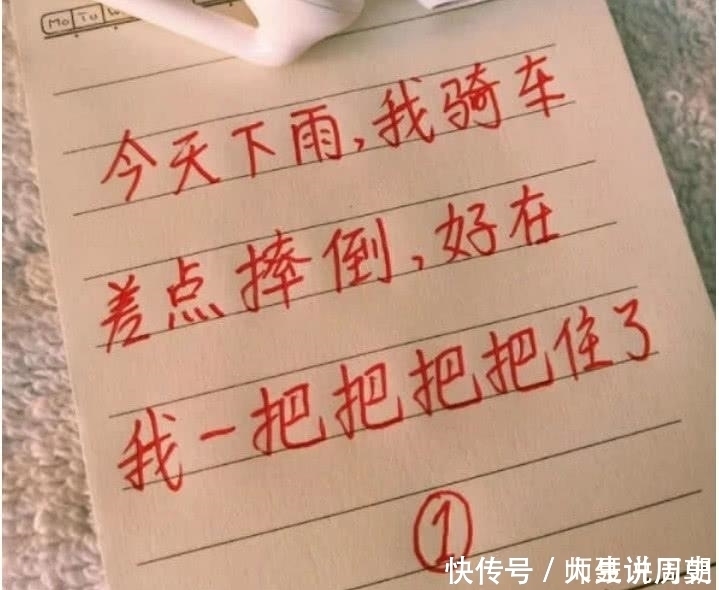 Mo Tu W
今天下雨,我骑车
差点摔倒,好在
我一把把把把住了
①
快传号 /